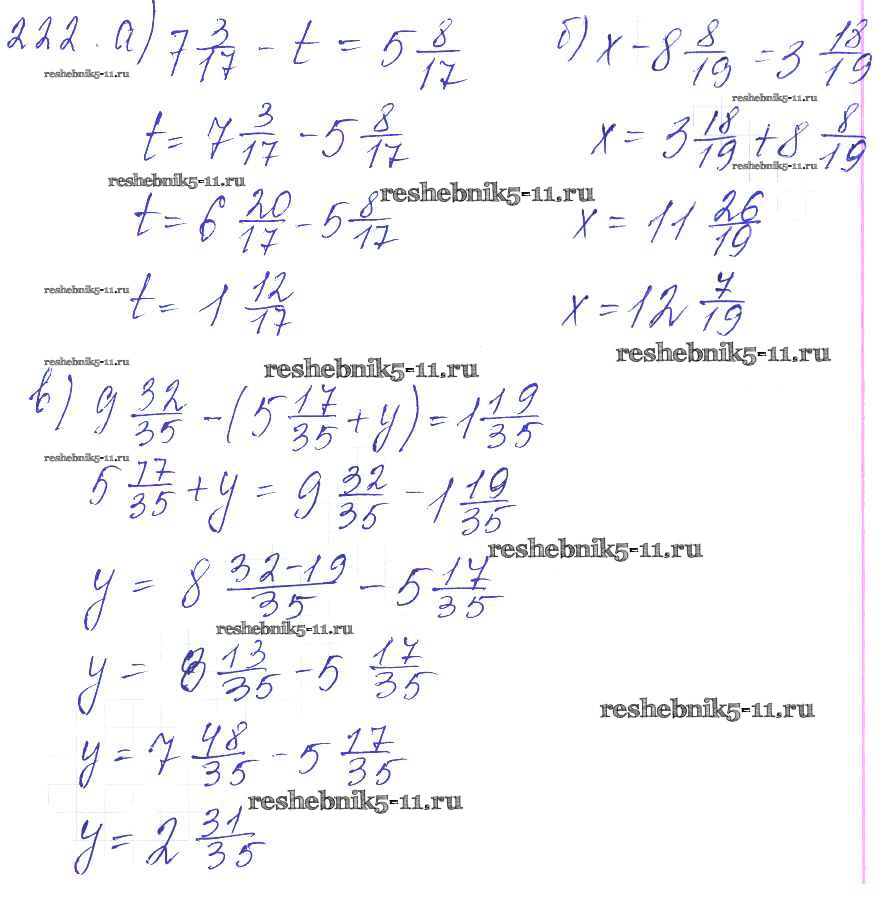 222. а) 7 3/17 - t = 5 8/17
t = 7 3/17 - 5 8/17
t = 6 20/17 - 5 8/17
t = 1 12/17
б) x - 8 8/19 = 3 18/19
x = 3 18/19 + 8 8/19
x = 11 26/19
x = 12 7/19
в) 9 32/35 - (5 17/35 + y) = 1 19/35
5 17/35 + y = 9 32/35 - 1 19/35
y = 8 (32-19)/35 - 5 17/35
y = 8 13/35 - 5 17/35
y = 7 48/35 - 5 17/35
y = 2 31/35
reshebnik5-11.ru
reshebnik5-11.ru
reshebnik5-11.ru
reshebnik5-11.ru
reshebnik5-11.ru
reshebnik5-11.ru
reshebnik5-11.ru
reshebnik5-11.ru
reshebnik5-11.ru
reshebnik5-11.ru
reshebnik5-11.ru
reshebnik5-11.ru
reshebnik5-11.ru
reshebnik5-11.ru